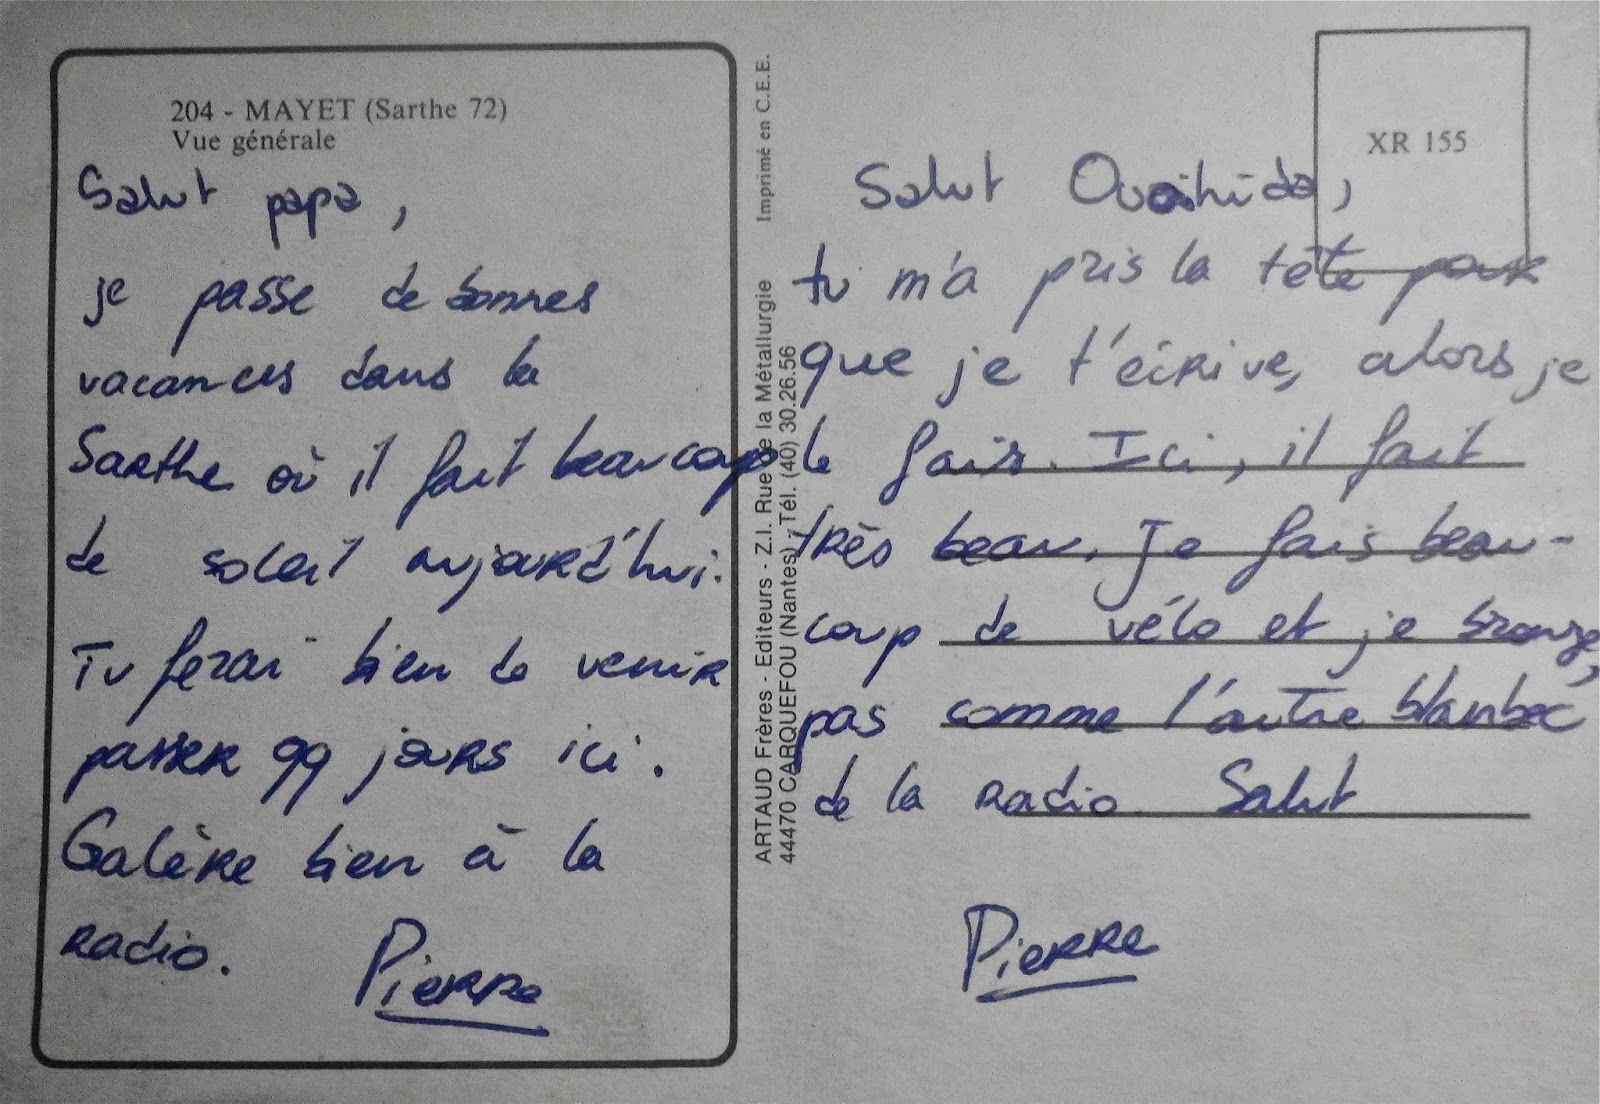 204 - MAYET (Sarthe 72)
Vue générale
Salut papa,
je passe de bonnes
vacances dans la
Sarthe où il fait beaucoup
de soleil aujourd'hui.
Tu ferai bien de venir
passer 99 jours ici.
Galère bien à la
radio. Pierre
Imprimé en C.E.E.
ARTAUD Frères - Editeurs - Z.I. Rue de la Métallurgie
44470 CARQUEFOU (Nantes) - Tél. (40) 30.26.56
XR 155
Salut Ouahida,
tu m'a pris la tête pour
que je t'écrive, alors je
le fais. Ici, il fait
très beau. Je fais beau-
coup de vélo et je bronze,
pas comme l'autre blanbec
de la radio. Salut
Pierre